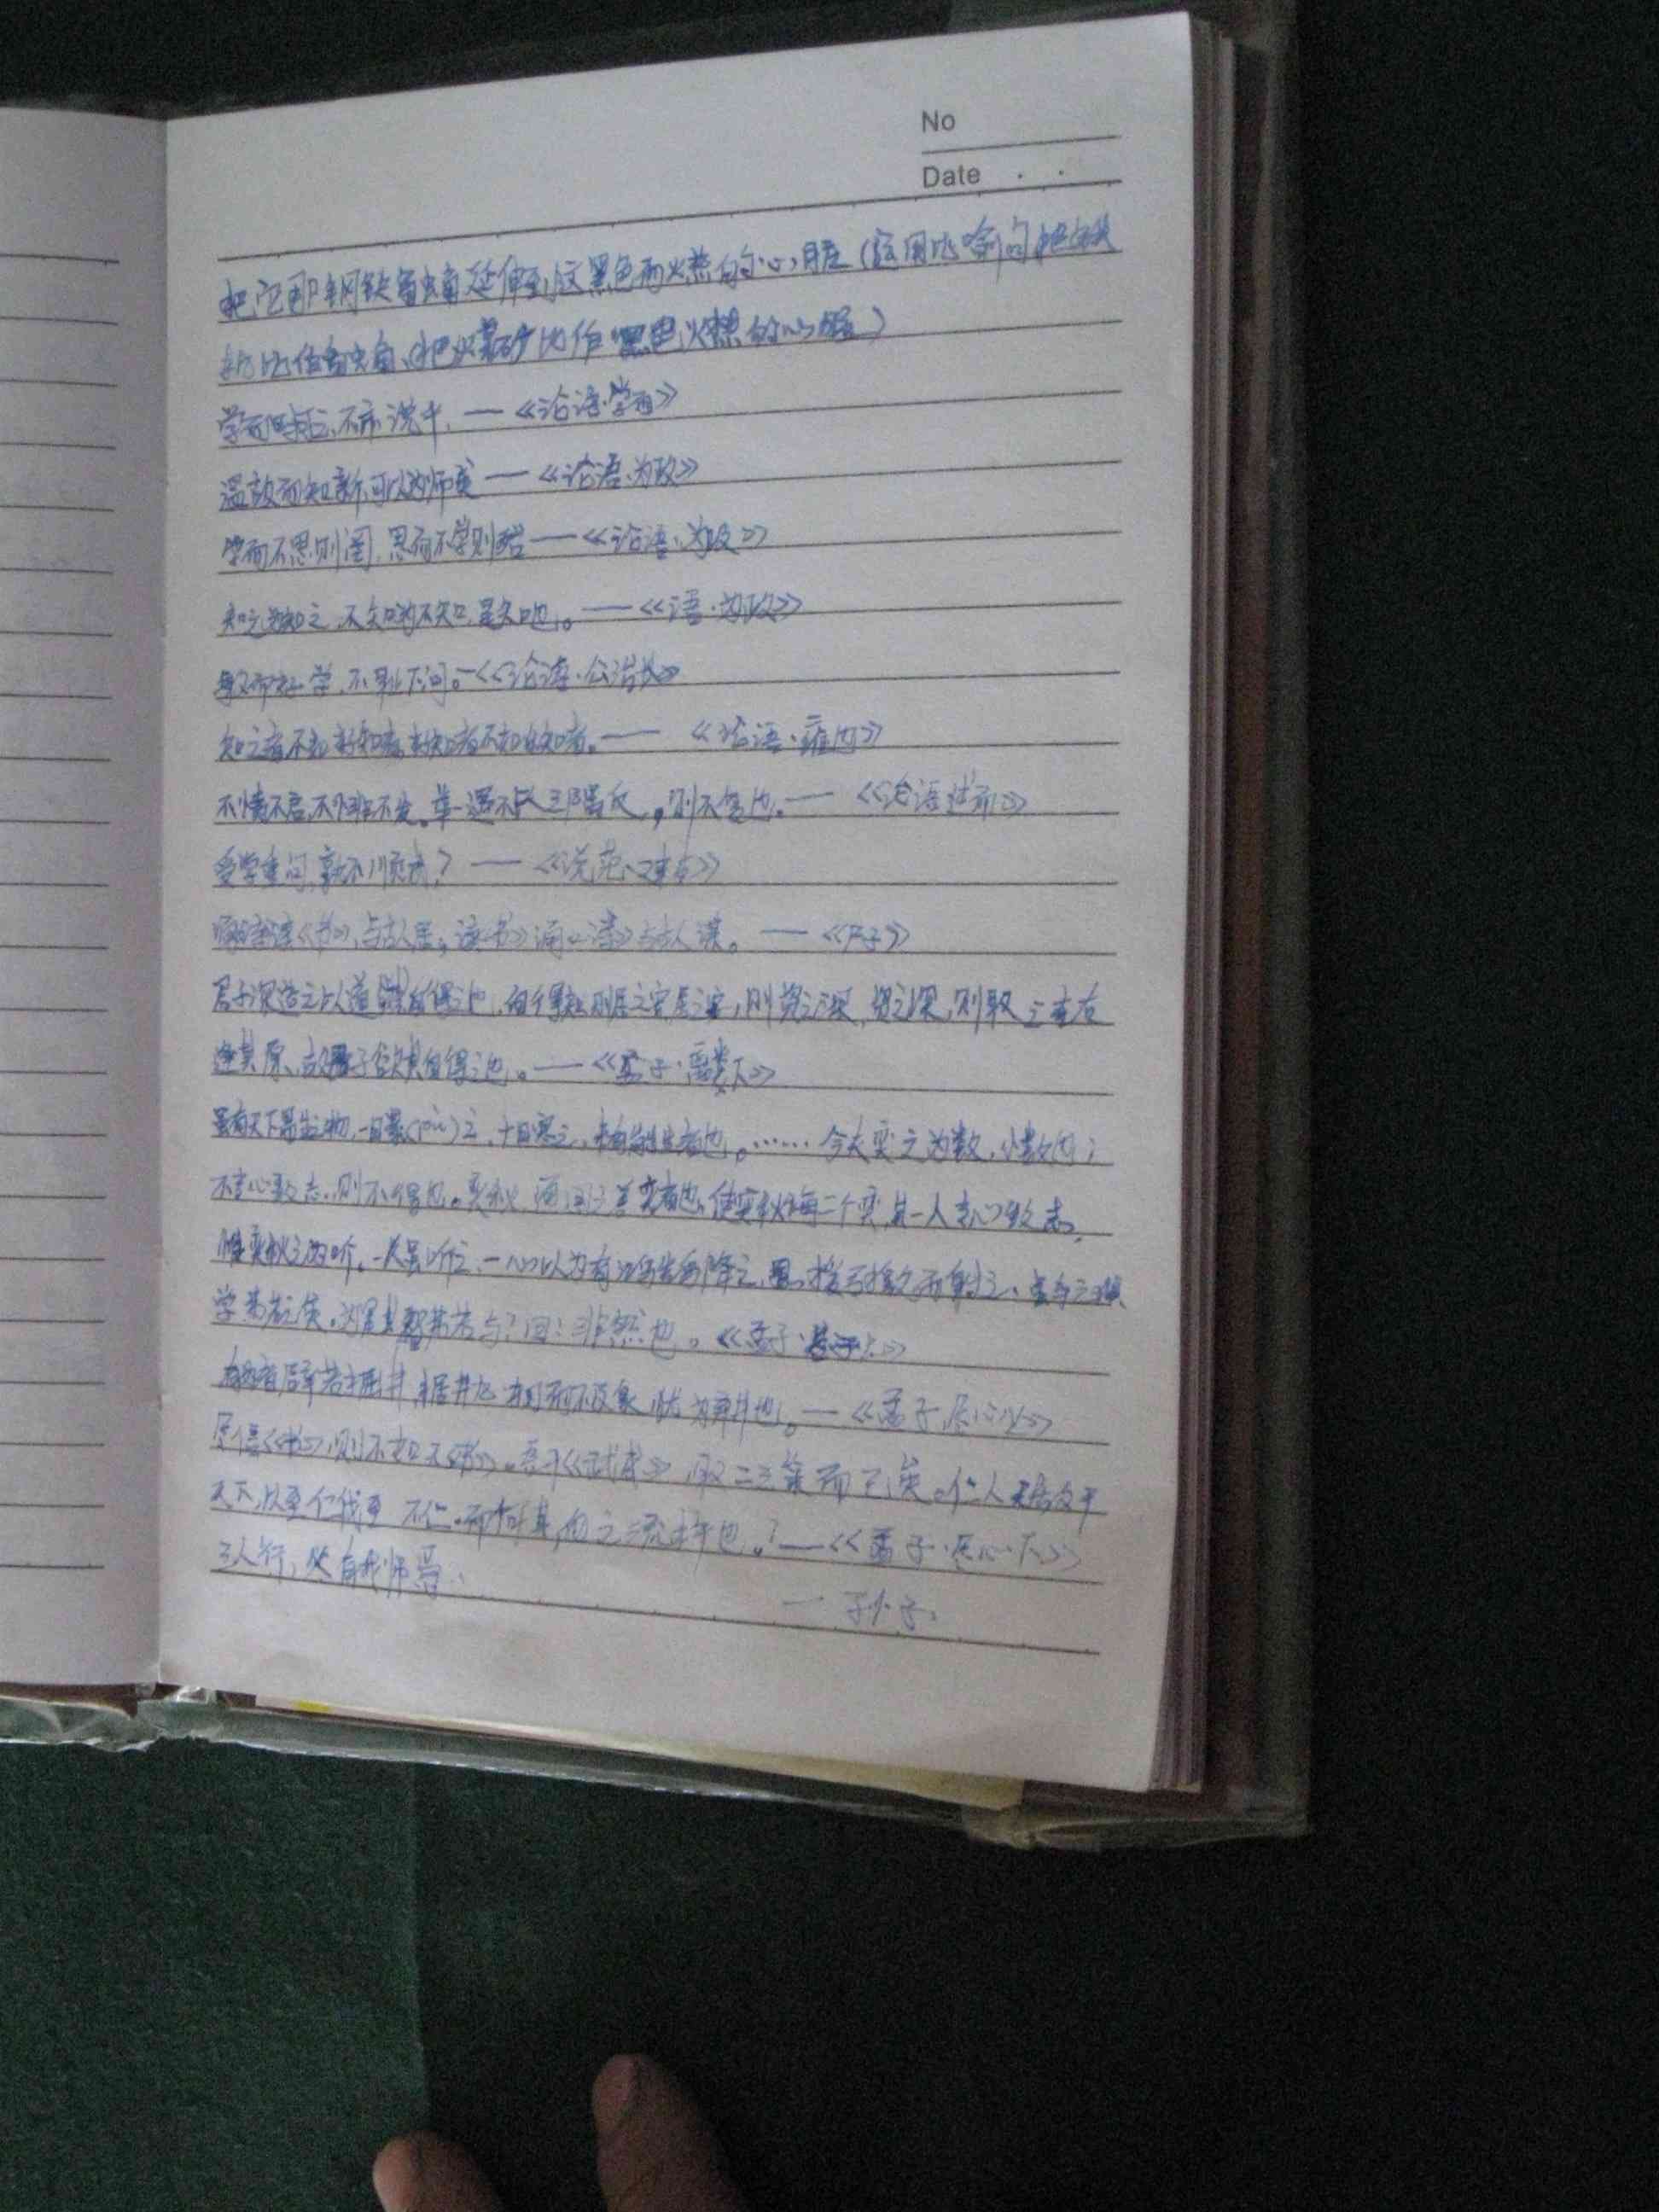 No
Date . .
把它那钢铁触角延伸到这黑色而火热的心脏(运用比喻句把钢铁
比作触角,把火煤矿比作黑色火热的心脏)
学而时习之,不亦说乎,——《论语·学而》
温故而知新,可以为师矣——《论语·为政》
学而不思则罔,思而不学则殆——《论语·为政》
知之为知之,不知为不知,是知也。——《语·为政》
敏而好学,不耻下问。—《论语·公冶长》
知之者不如好知者,好知者不如乐知者。——《论语·雍也》
不愤不启,不悱不发。举一遇不以三隅反,则不复也。——《论语述而》
受学重问,孰不顺哉?——《说苑·建本》
诵《书》,与古人居;读《书》诵《诗》与古人谋。——《尸子》
君子深造之以道,欲其自得之也,自得之,则居之安,居之安,则资之深,资之深,则取之左右
逢其原,故君子欲其自得之也。——《孟子·离娄下》
虽有天下易生之物,一日暴(pù)之,十日寒之,未有能生者也。……今夫弈之为数,小数也;
不专心致志,则不得也。弈秋,通国之善弈者也,使弈秋诲二个弈,其一人专心致志,
惟弈秋之为听。一人虽听之,一心以为有鸿鹄将至,思援弓缴而射之,虽与之俱
学,弗若之矣。为是其智弗若与?曰:非然也。《孟子·告子上》
有为者辟若掘井,掘井九仞而不及泉,犹为弃井也。—《孟子,尽心上》
尽信《书》,则不如无《书》。吾于《武成》取二三策而已矣。仁人无敌于
天下,以至仁伐至不仁。而何其血之流杵也。?——《孟子·尽心下》
三人行,必有我师焉..
— 孔子.